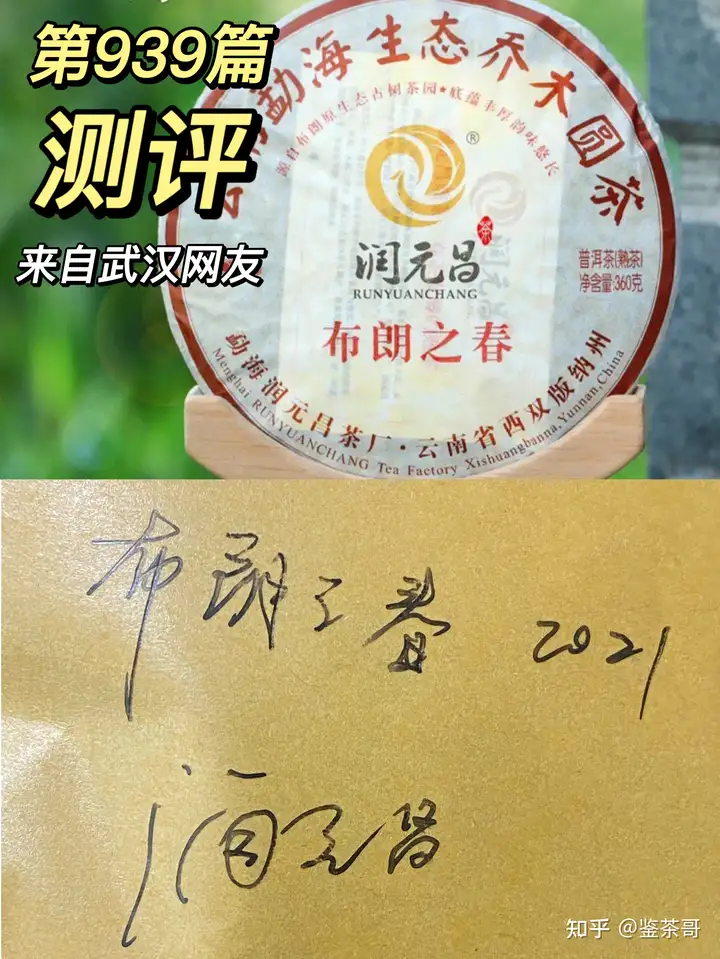 第939篇
测评
来自武汉网友
勐海生态乔木圆茶
源自布朗原生态古树茶园★底蕴丰厚韵味悠长
®
茶
润元昌
RUNYUANCHANG
普洱茶(熟茶)
净含量:360克
布朗之春
勐海润元昌茶厂·云南省西双版纳州
Menghai RUNYUANCHANG Tea Factory Xishuangbanna,Yunnan,China
布朗之春 2021
润元昌
知乎 @鉴茶哥